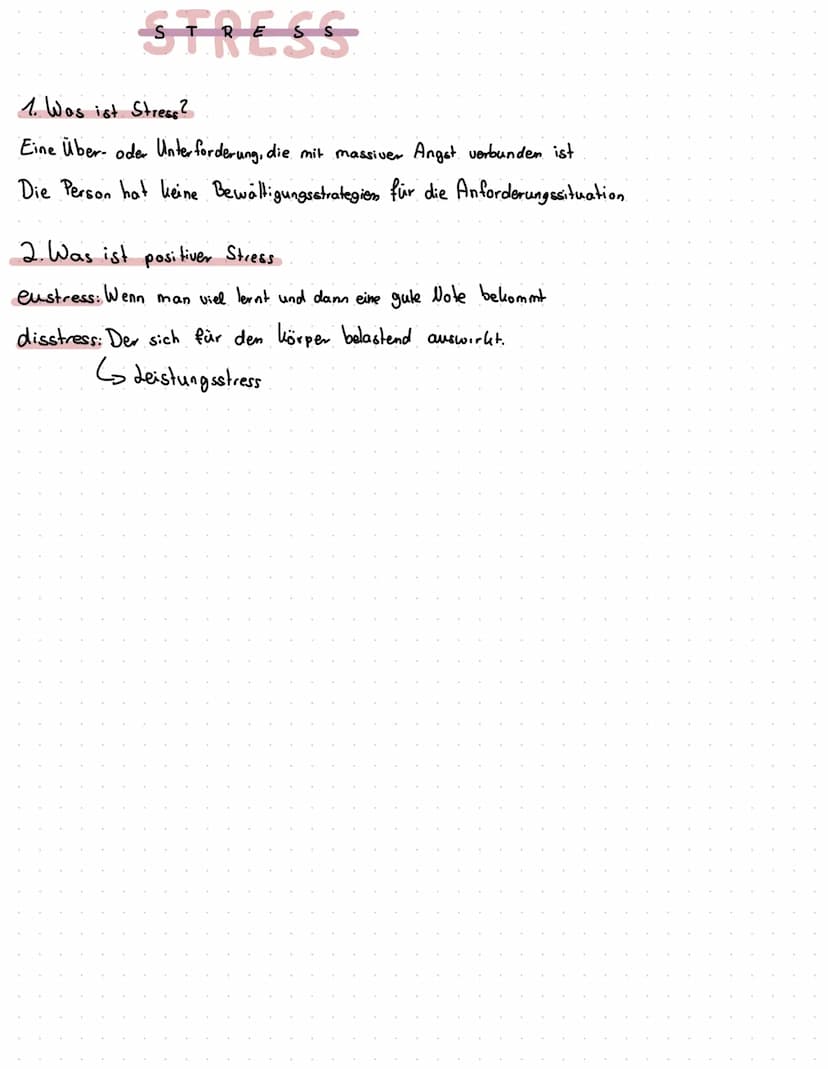 STRESS
1. Was ist Stress?
Eine Über- oder Unterforderung, die mit massiver Angst verbunden ist
Die Person hat keine Bewältigungsstrategien für die Anforderungssituation
2. Was ist positiver Stress
eustress: Wenn man viel lernt und dann eine gute Note bekommt
disstress: Der sich für den körper belastend auswirkt.
↳ Leistungsstress